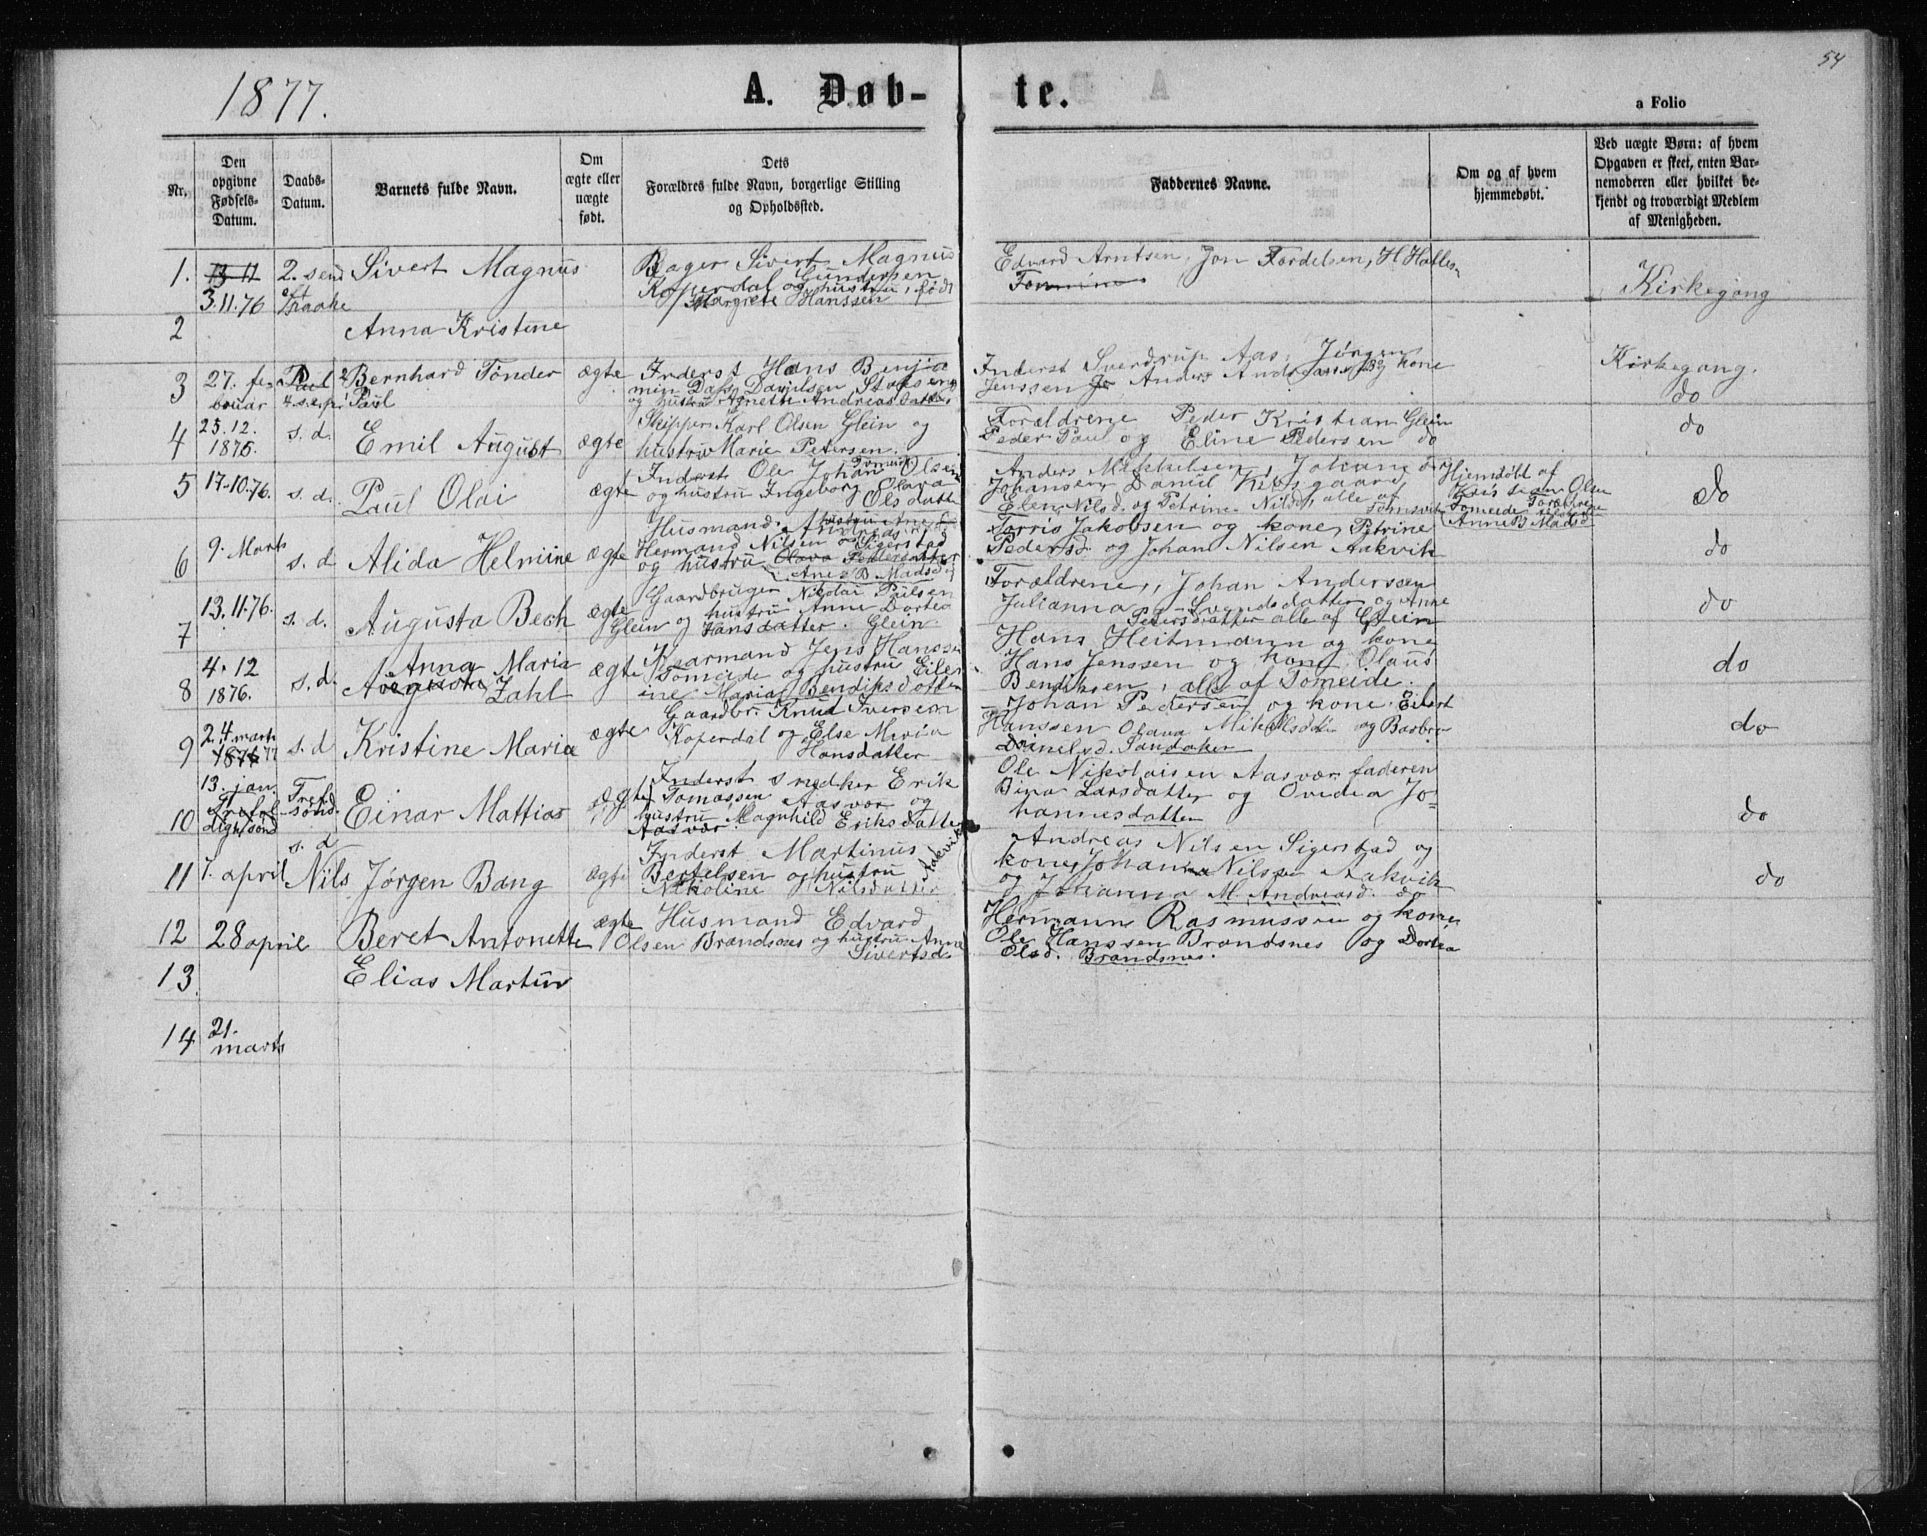 54
1877.
A. Døb-
te.
a Folio
Nr.
Den
opgivne
Fødsels-
Datum.
Daabs-
Datum.
Barnets fulde Navn.
Om
ægte eller
uægte
født.
Dets
Forældres fulde Navn, borgerlige Stilling
og Opholdssted.
Faddernes Navne.
Om og af hvem
hjemmedøbt.
Ved uægte Børn: af hvem
Opgaven er skeet, enten Bar-
nemoderen eller hvilket be-
kjendt og troværdigt Medlem
af Menigheden.
1. 13 11 2. Sivert Magnus
3.11.76
Bager Sivert Magnus
Gundersen
Koperdal og hustru, født
Margrete Hanssen
Edvard Arntsen, Jon
Kirkegang
2 Anna Kristine
3 27. fe-
bruar
Bernhard Tønder
Paul
ægte
Inderst Hans Benja
min Danjelsen
og hustru Anette Andreasdatter
Inderst Sverdrup Aas, Jørgen
Jenssen Anders og kone
Kirkegang.
do
4 25.12.
1876.
s. d. Emil August ægte
Skipper Karl Olsen Glein og
hustru Marie Petersen.
Forældrene Peder Kristian Glein
Peder Paul og Eline Pedersen do
do
5 17.10.76. s. d. Paul Olai ægte
Inderst Ole Johan Olsen
Tomeide
og hustru Ingeborg Olava
Olsdatter
Anders Mikkelsen, Johan
Johansen Daniel
Elen Nilsd. og Petrine Nilsd, alle af
Hjemdøbt af
Kristian Olsen
Tomeide
Anne B Madsd
do
6 9. Marts s. d Alida Helmine ægte
Husmand.
Hermand Nilsen Sigerstad
og hustru Olava Pedersdatter
Ane B. Madsd
Torris Jakobsen og kone, Petrine
Pedersd og Johan Nilsen Aakvik
do
7 13.11.76. s. d. Augusta Bech ægte
Gaardbruger Nikolai Pulsen
Glein og hustru Anne Dortea
Hansdatter. Glein
Forældrene, Johan Andersen
Julianna Svendsdatter og Anne
Pedersdatter alle af Glein
do
8 4. 12
1876.
s. d. Anna Maria
Augusta Zahl
ægte
Kaarmand Jens Hanssen
Tomeide og hustru Eilert
ine Maria Bendiksdatter
Hans Heitmann og kone
Hans Jenssen og kone, Olaus
Bendiksen, alle af Tomeide.
do
9 24. marts
1877
s. d Kristine Maria ægte
Gaardbr. Knud Iversen
Koperdal og Else Maria
Hansdatter
Johan Pedersen og kone. Eilert
Hanssen Olava Mikkelsdtr og Barbro
Danielsd. Sandaker
do
10 13. jan.
Tref.
sønd.
Einar Mattias ægte
Inderst snedker Erik
Tomassen Aasvær og
hustru Magnhild Eriksdatter
Aasvær.
Ole Nikolaisen Aasvær faderen
Bina Larsdatter og Ovidia Jo-
hannesdatter
do
11 7. april s. d Nils Jørgen Bang ægte
Inderst Martinus
Bertelsen og hustru
Nikoline Nilsdatter
Aakvik
Andreas Nilsen Sigerstad og
kone, Johan Nilsen Aakvik
og Johanna M. Andreasd. do
do
12 28 april Beret Antonette ægte
Husmand Edvard
Olsen Brandsnes og hustru Anna
Sivertsd.
Hermann Rasmussen og kone
Ole Hanssen Brandsnes og Dortea
Olsd. Brandsnes.
13 Elias Martin
14 21.
marts